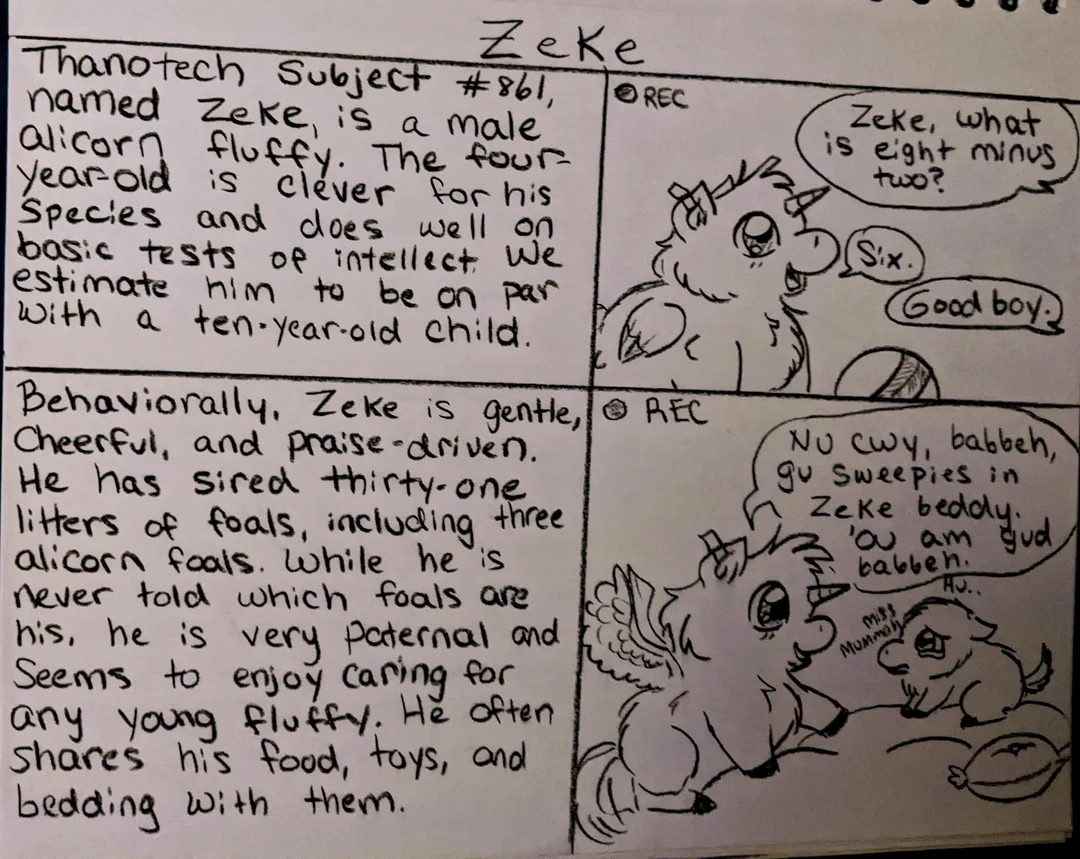 Zeke
Thanotech Subject #861,
named Zeke, is a male
alicorn fluffy. The four-
year-old is clever for his
species and does well on
basic tests of intellect. We
estimate him to be on par
with a ten-year-old child.
REC
Zeke, what
is eight minus
two?
Six.
Good boy.
Behaviorally, Zeke is gentle,
Cheerful, and praise-driven.
He has sired thirty-one
litters of foals, including three
alicorn foals. While he is
never told which foals are
his, he is very paternal and
Seems to enjoy caring for
any young fluffy. He often
shares his food, toys, and
bedding with them.
REC
Nu cwy, babbeh,
gu sweepies in
Zeke beddy.
'Ou am gud
babbeh.
Hu..
Miss
Mummah